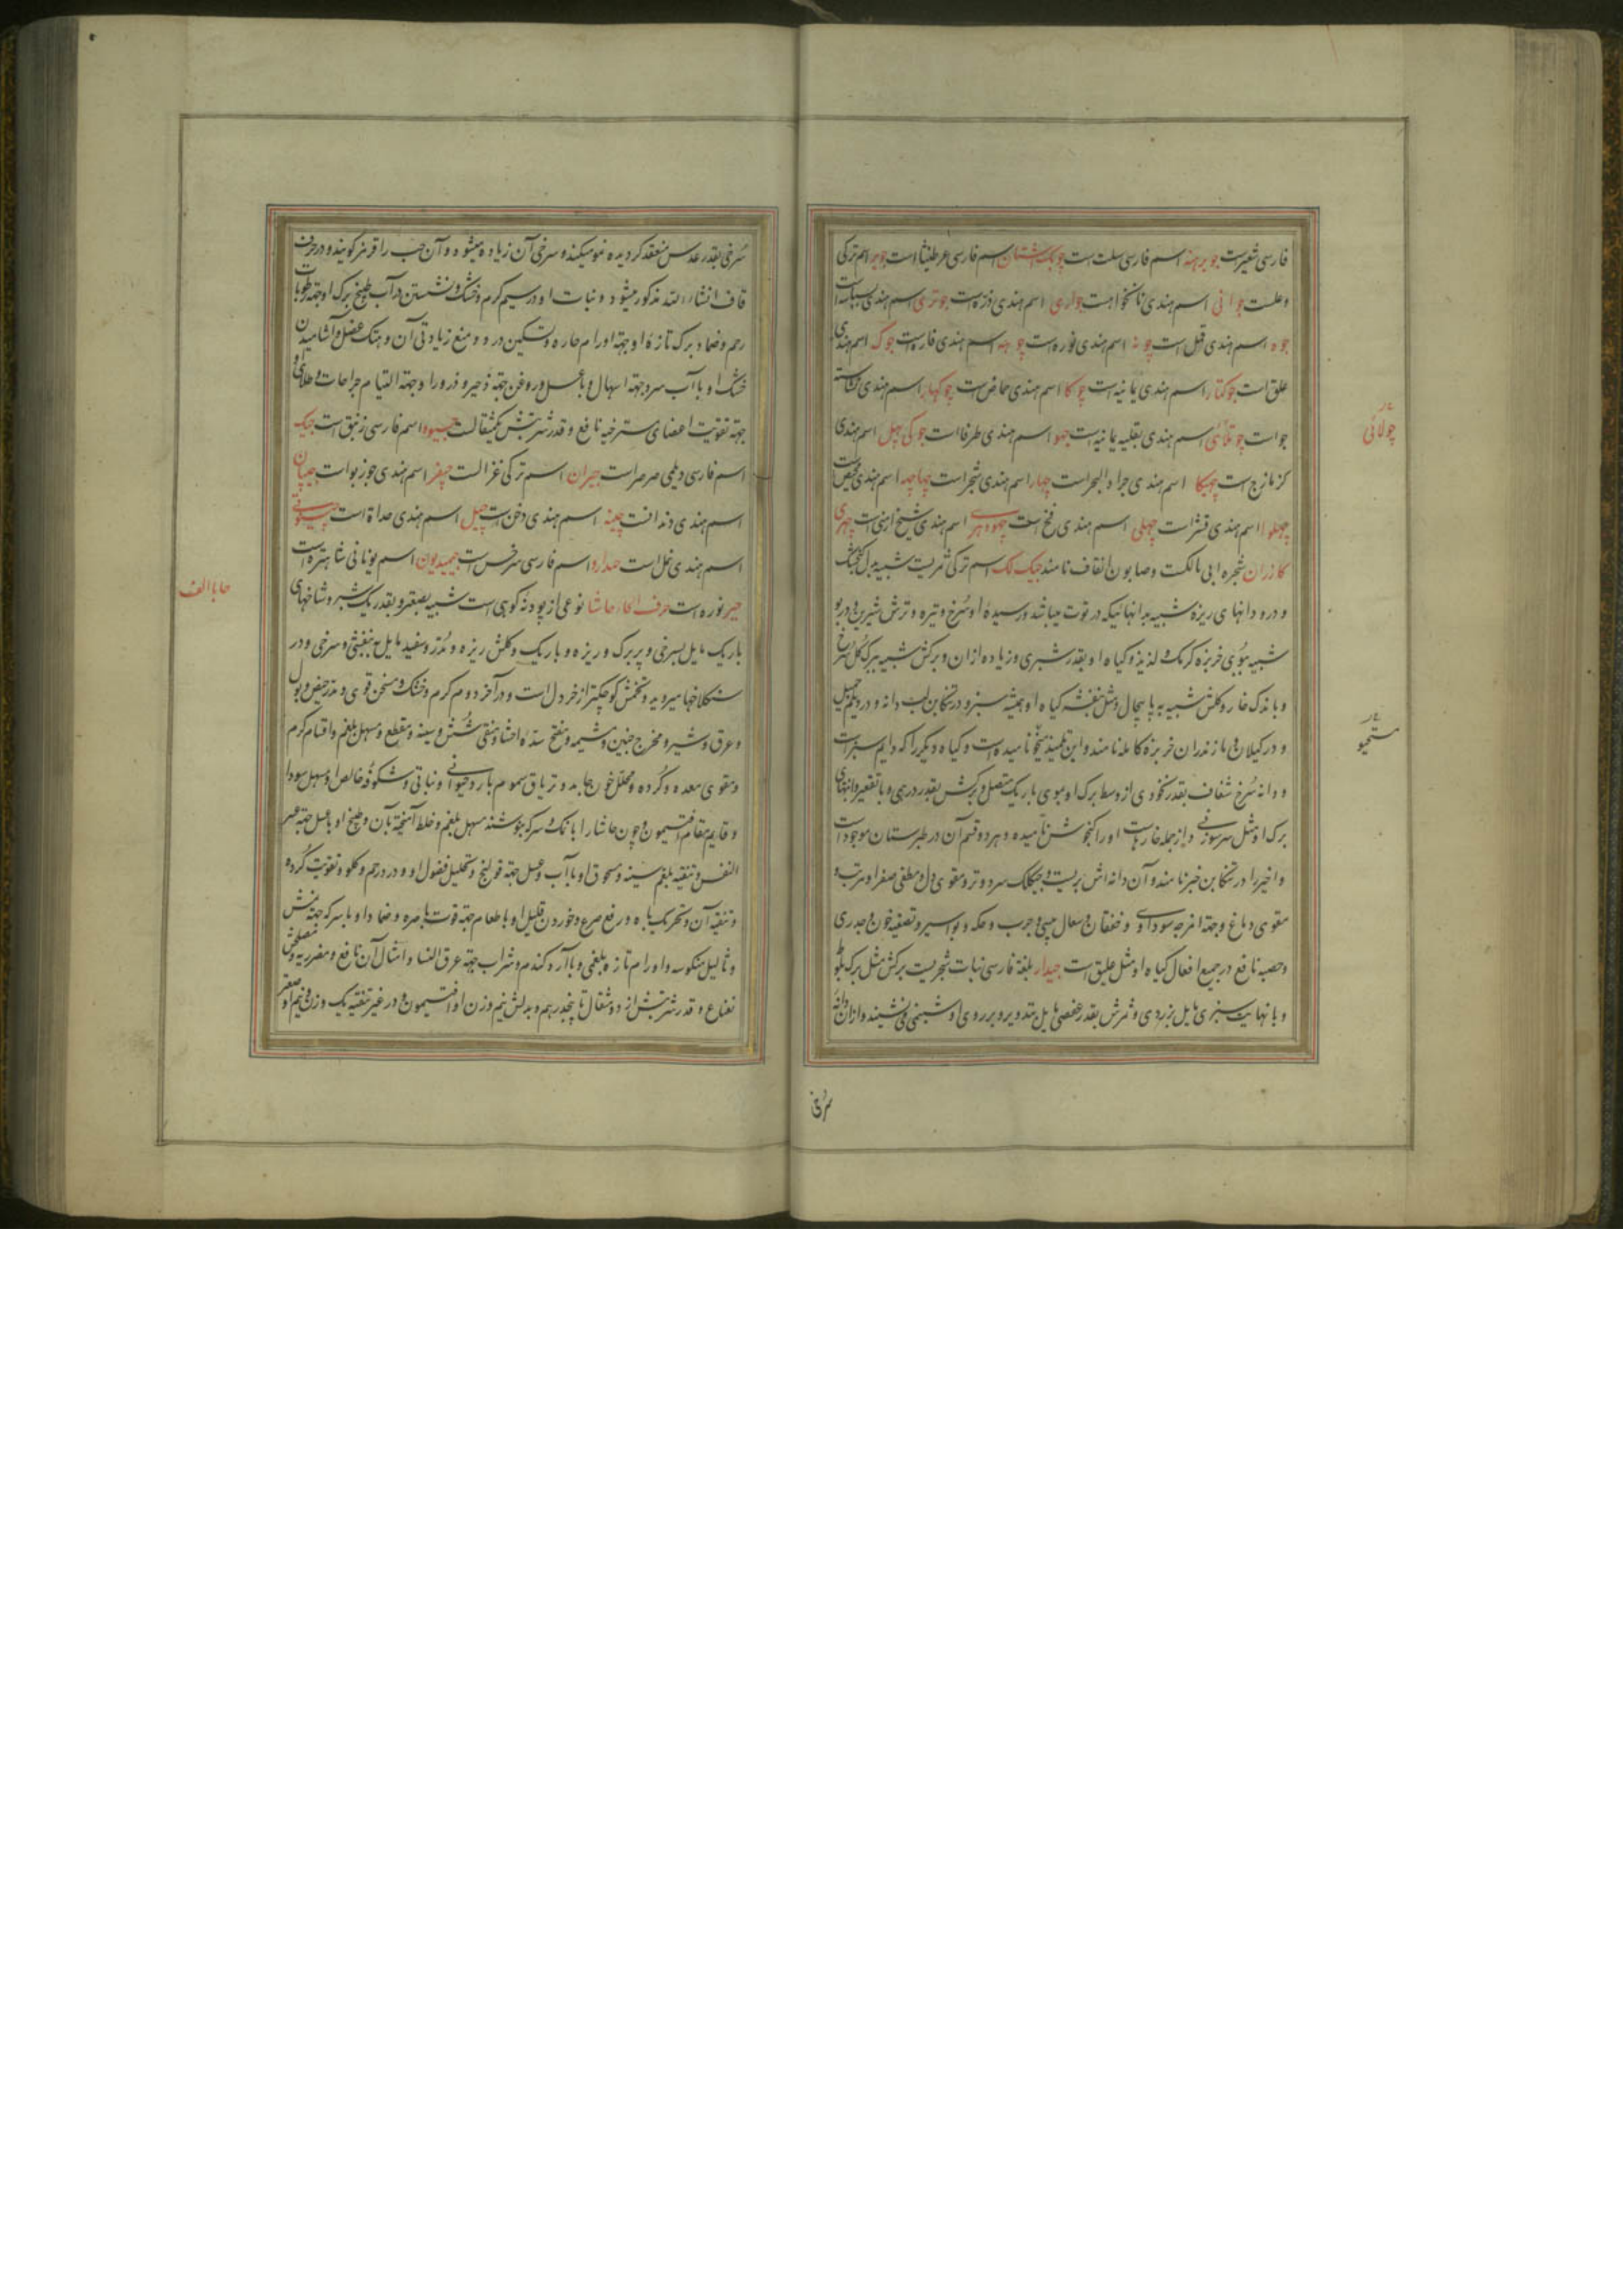 فارسی شعیر است جو برهنه اسم فارسی سلت است چوبک اشنان اسم فارسی عرطنیثا است جویر اسم ترکی
وعلست جوانی اسم هندی نانخواه است جواری اسم هندی ذره است جوتری اسم هندی بسباسه است
جوه اسم هندی قمل است چونه اسم هندی نوره است چوهه اسم هندی فاره است جوک اسم هندی
علق است جوکتار اسم هندی یمانیه است چوکا اسم هندی حماض است چوکهار اسم هندی
جو است چولائی اسم هندی بقلیه یمانیه است جهو اسم هندی طرفا است جوکی چهل اسم هندی
کزمازج است چهنیکا اسم هندی جراد البحر است چهار اسم هندی شجر است چهاچه اسم هندی مخیض است
اسم هندی قشر است چهلی اسم هندی فخ است اسم هندی شیح ارمنی است
کازران شجره ابی مالکست و صابون القاف نامند جیک لک اسم ترکی ثمریست شبیه
و درو دانهای ریزه شبیه بدانهائیکه در توت میباشد و رسیده او سرخ و تیره و ترش شیرین و در بو
شبیه ببوی خربزه کرمک و لذیذ و کیاه او بقدر شبری و زیاده از ان و برکش شبیه ببرک کل سرخ
و با اندک خار و کلش شبیه به پاپیچال و مثل بنفشه کیاه او همیشه سبز و در تنکابن لب دانه و در دیلم
و در کیلان و مازندران خربزه کاملہ نامند و این تلمیذ نامیده است و کیاه دیکر را که دایم سبز است
و دانه سرخ شفاف بقدر نخودی از وسط برک او بموی باریک متصل و برکش بقدر درهمی و با تقعیر و انتهای
برک او مثل سر سوزنی و از جمله خارهاست او را کنجوشن نامیده و هر دو قسم آن در طبرستان موجود است
و اخیر را در تنکابن خبز نامند و آن دانه اش بریست و جیکلک سرد و تر و مقوی دل و مطفی صفرا و مرتب و
مقوی دماغ و جهة امزجه سوداوی و خفقان و سعال یبسی و جرب و حکه و بواسیر و تصفیه خون و جدری
و حصبه نافع در جمیع افعال کیاه او مثل علیق است جیدار بلغة فارسی نبات شجریست برکش مثل برک بلوط
و با نهایت سبزی مایل بزردی و ثمرش بقدر عفصی مایل بتدویر و بر روی او شبنمی می نشیند و از ان دانه
سرخی
چولائی
سرخی بقدر عدس منعقد کردیده نمو میکند و سرخی آن زیاده میشود و آن حب را قرمز کویند و در حرف
قاف انشاء الله مذکور میشود و نبات او در سیم کرم و خشک و نشستن در آب طبیخ برک او جهة رطوبات
رحم و ضماد برک تازه او جهة اورام حاره و تسکین درد و منع زیادتی آن و هتک عضل و آشامیدن
خشک او با آب سرد جهة اسهال و با عسل و روغن جهة زحیر و ذرور او جهة التیام جراحات و طلای او
جهة تقویت اعضای مسترخیه نافع و قدر شربتش یکمثقالست جیوه اسم فارسی زیبق است جیک
اسم فارسی دیلمی صرصر است جیران اسم ترکی غزالست جیفر اسم هندی جوز بوا است
اسم هندی دند انست چینه اسم هندی دخن است چیل اسم هندی حداة است
اسم هندی نمل است جیدارو اسم فارسی سرخس است جیمیدیون اسم یونانی شاهتره است
جیر نوره است حرف الحاء حاشا نوعی از پودنه کوهی است شبیه بصعتر و بقدر یک شبر و شاخهای
باریک مایل بسرخی و پر برک و ریزه و باریک و کلش ریزه و مدور سفید مایل به بنفشی و سرخی و در
سنکلاخها میروید و تخمش کوچکتر از خردل است و در آخر دوم کرم و خشک و مسخن قوی و مدر حیض و بول
و عرق و شیر و مخرج جنین و مشیمه و مفتح سده احشا و منقی شش و سینه و مقطع و مسهل بلغم و اقسام کرم
و مقوی معده و کرده و محلل خون جامد و تریاق سموم بارد حیوانی و نباتی و شکوفه خالص او مسهل سودا
و قایم مقام افتیمون و چون حاشا را با نمک و سرکه بنوشند مسهل بلغم و خلط آمیخته بآن و طبیخ او با عسل جهة عسر
النفس و تنقیه بلغم سینه و مسحوق او با آب و عسل جهة قولنج و تحلیل فضول او و درد رحم و کلو و تقویت کرده
و تنقیه آن و تحریک باه و رفع صرع و خوردن قلیل او با طعام جهة قوت باصره و ضماد او با سرکه جهة
و ثالیل منکوسه و اورام تازه بلغمی و با آرد کندم و شراب جهة عرق النسا و امثال آن نافع و مضر ریه و مصلحش
نعناع و قدر شربتش از دو مثقال تا پنجدرهم و بدلش نیم وزن او افتیمون و در غیر تنقیه یک وزن و نیم او صعتر
حا با الف